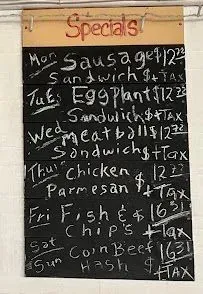 Specials
Mon Sausage $12.72
Sandwich $ + Tax
Tue Eggplant $12.72
Sandwich $ + Tax
Wed meatballs 12.72
Sandwich $ + Tax
Thur Chicken $12.72
Parmesan $ + Tax
Fri Fish & $ 16.31
Chip's + Tax
Sat Corn Beef 16.31
Sun Hash $ + TAX